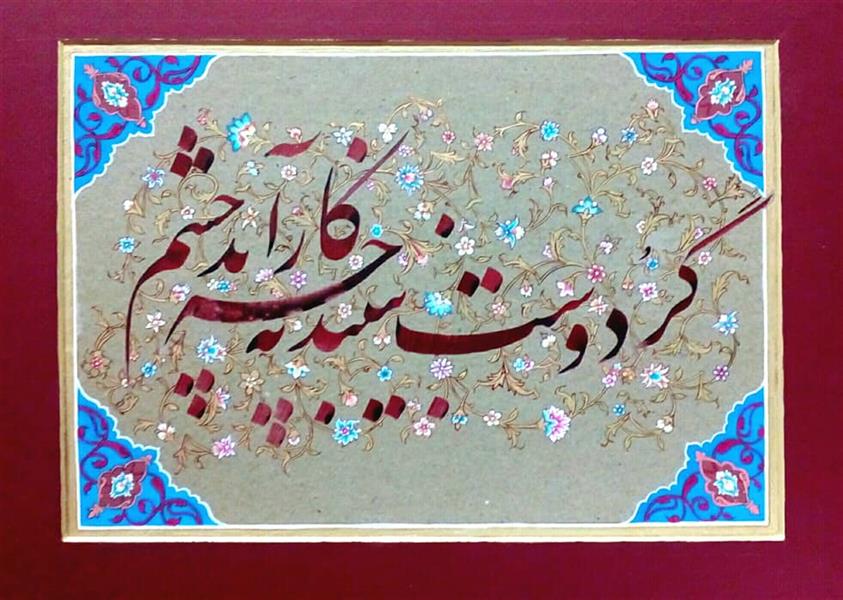 گر دوست نبیند به چه کار آید چشم